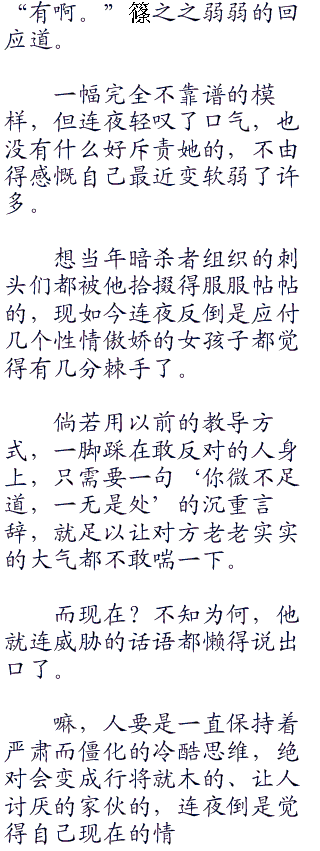 “有啊。”篠之之弱弱的回
应道。
一幅完全不靠谱的模
样，但连夜轻叹了口气，也
没有什么好斥责她的，不由
得感慨自己最近变软弱了许
多。
想当年暗杀者组织的刺
头们都被他拾掇得服服帖帖
的，现如今连夜反倒是应付
几个性情傲娇的女孩子都觉
得有几分棘手了。
倘若用以前的教导方
式，一脚踩在敢反对的人身
上，只需要一句‘你微不足
道，一无是处’的沉重言
辞，就足以让对方老老实实
的大气都不敢喘一下。
而现在？不知为何，他
就连威胁的话语都懒得说出
口了。
嘛，人要是一直保持着
严肃而僵化的冷酷思维，绝
对会变成行将就木的、让人
讨厌的家伙的，连夜倒是觉
得自己现在的情